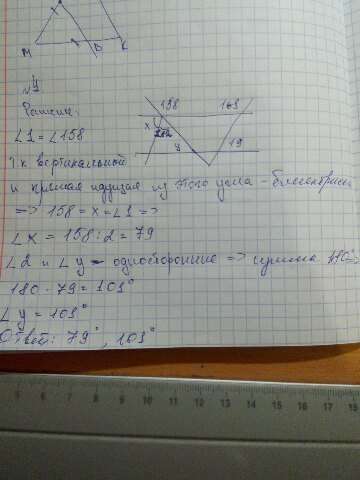 M D K
№4
Решение:
158 103
x 1 2
y 79
∠1 = ∠158
т.к вертикальной
и прямая идущая из этого угла - биссектриса
=> 158 = x = ∠1 =>
∠x = 158 : 2 = 79
∠2 и ∠y - односторонние => сумма 180°=>
180 - 79 = 101°
∠y = 101°
Ответ: 79°, 101°
5 6 7 8 9 10 11 12 13 14 15 16 17 18